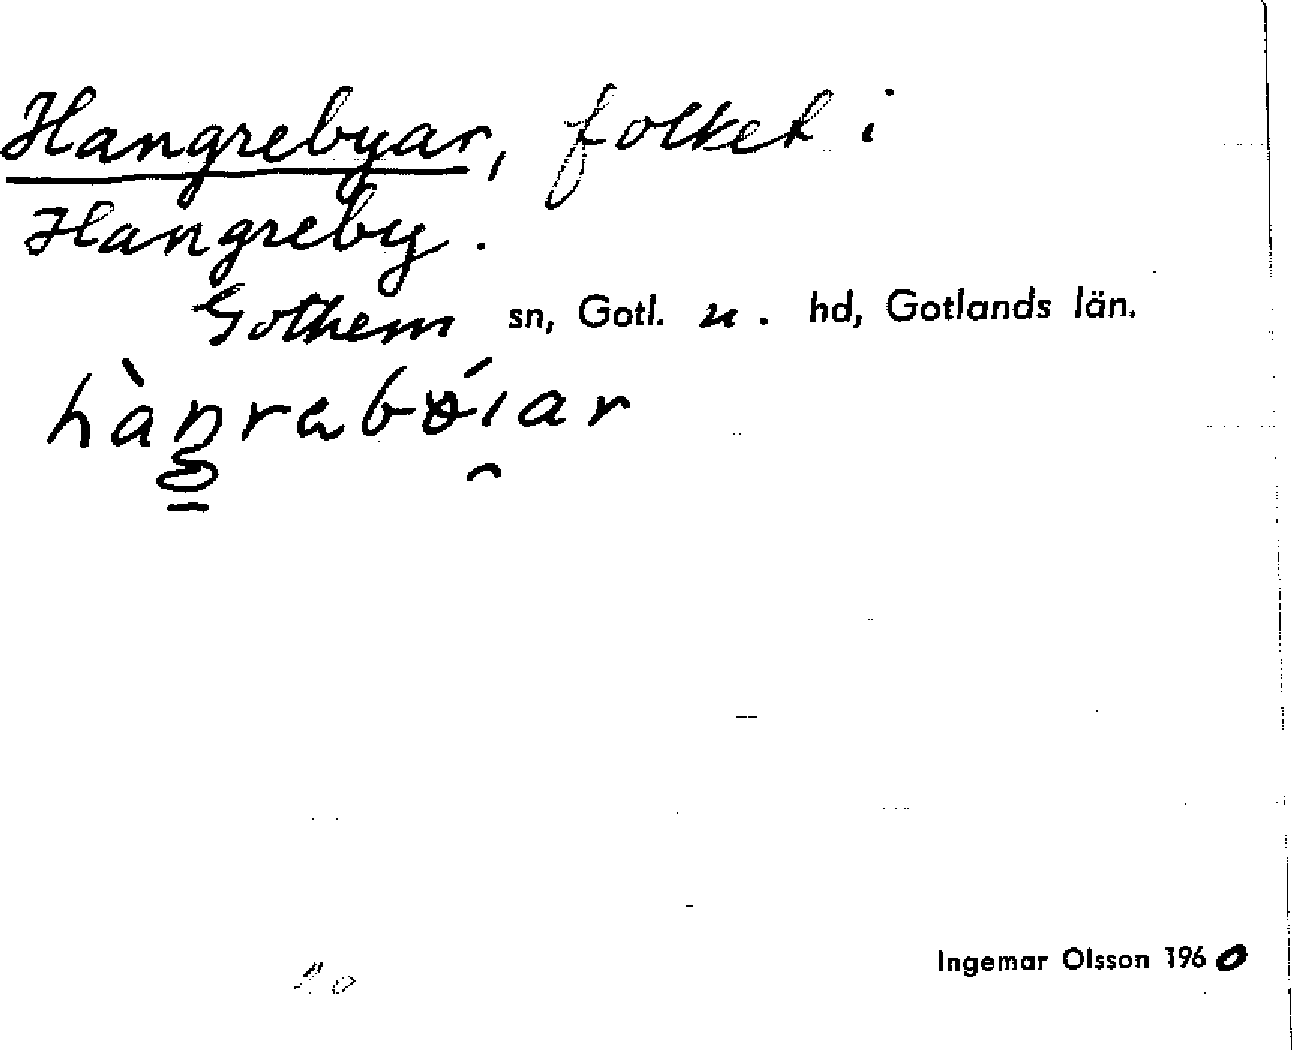 Hangrebyar, folket i
Hangreby.
Gothem sn, Gotl. n. hd, Gotlands län.
Ingemar Olsson 1960